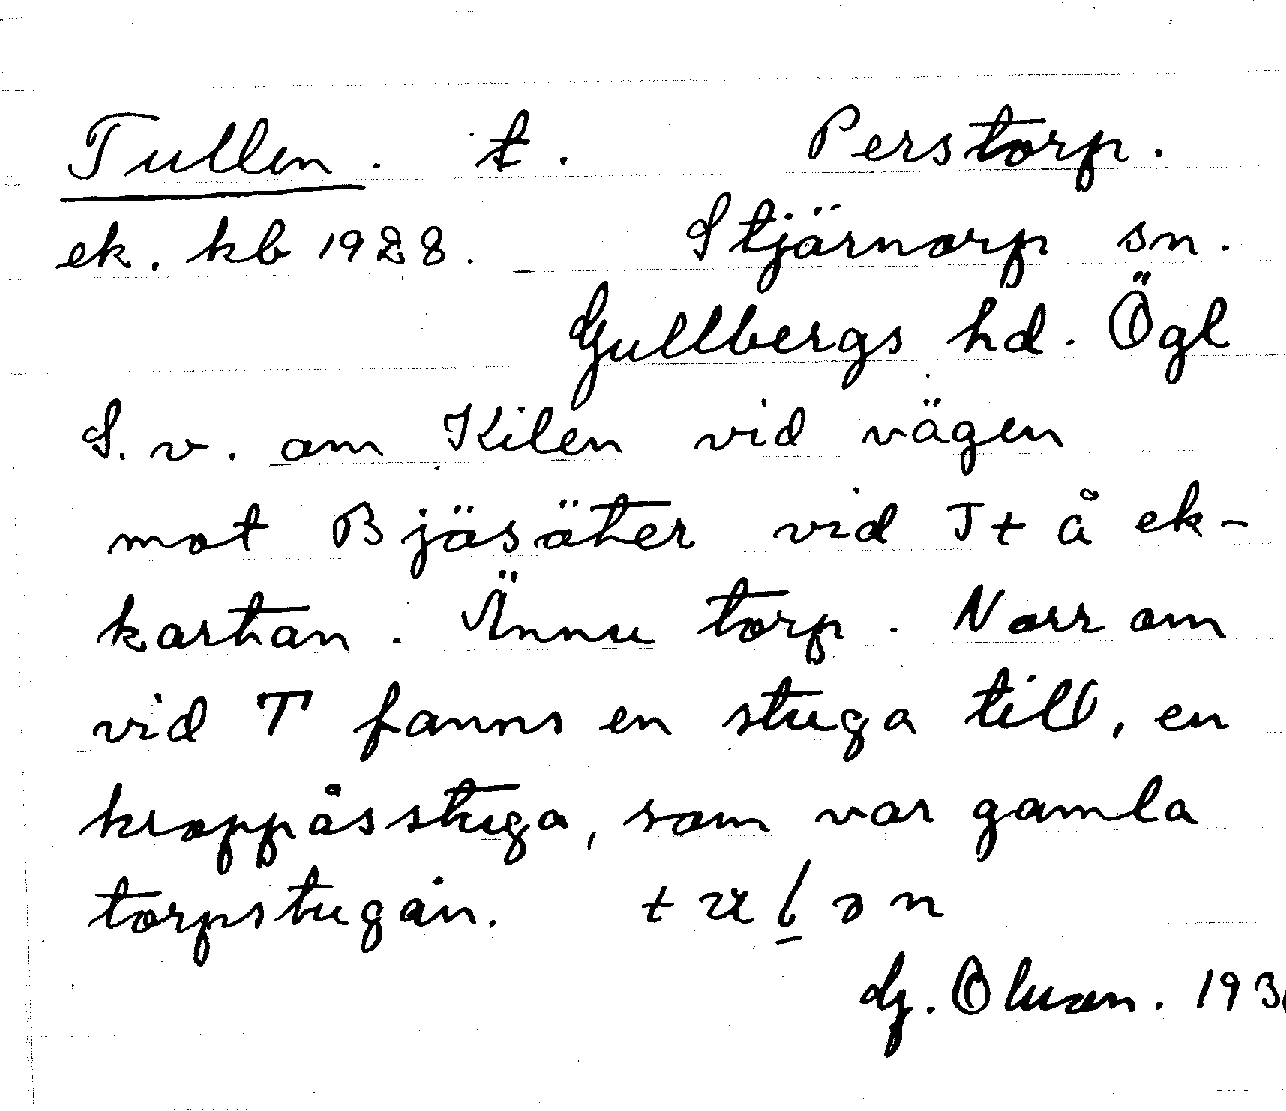 Tullen. t. Perstorp.
ek. kb 1928. Stjärnorp sn.
Gullbergs hd. Ögl
S. v. om Kilen vid vägen
mot Bjäsäter vid Tt å ek-
kartan. Ännu torp. Norr om
vid T fanns en stuga till, en
kroppåsstuga, som var gamla
torpstugan.
. Olsson. 193